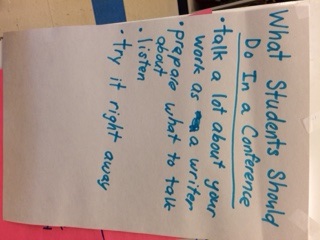 What Students Should
Do In a Conference
• talk a lot about your
work as a writer
• prepare what to talk
about
• listen
• try it right away